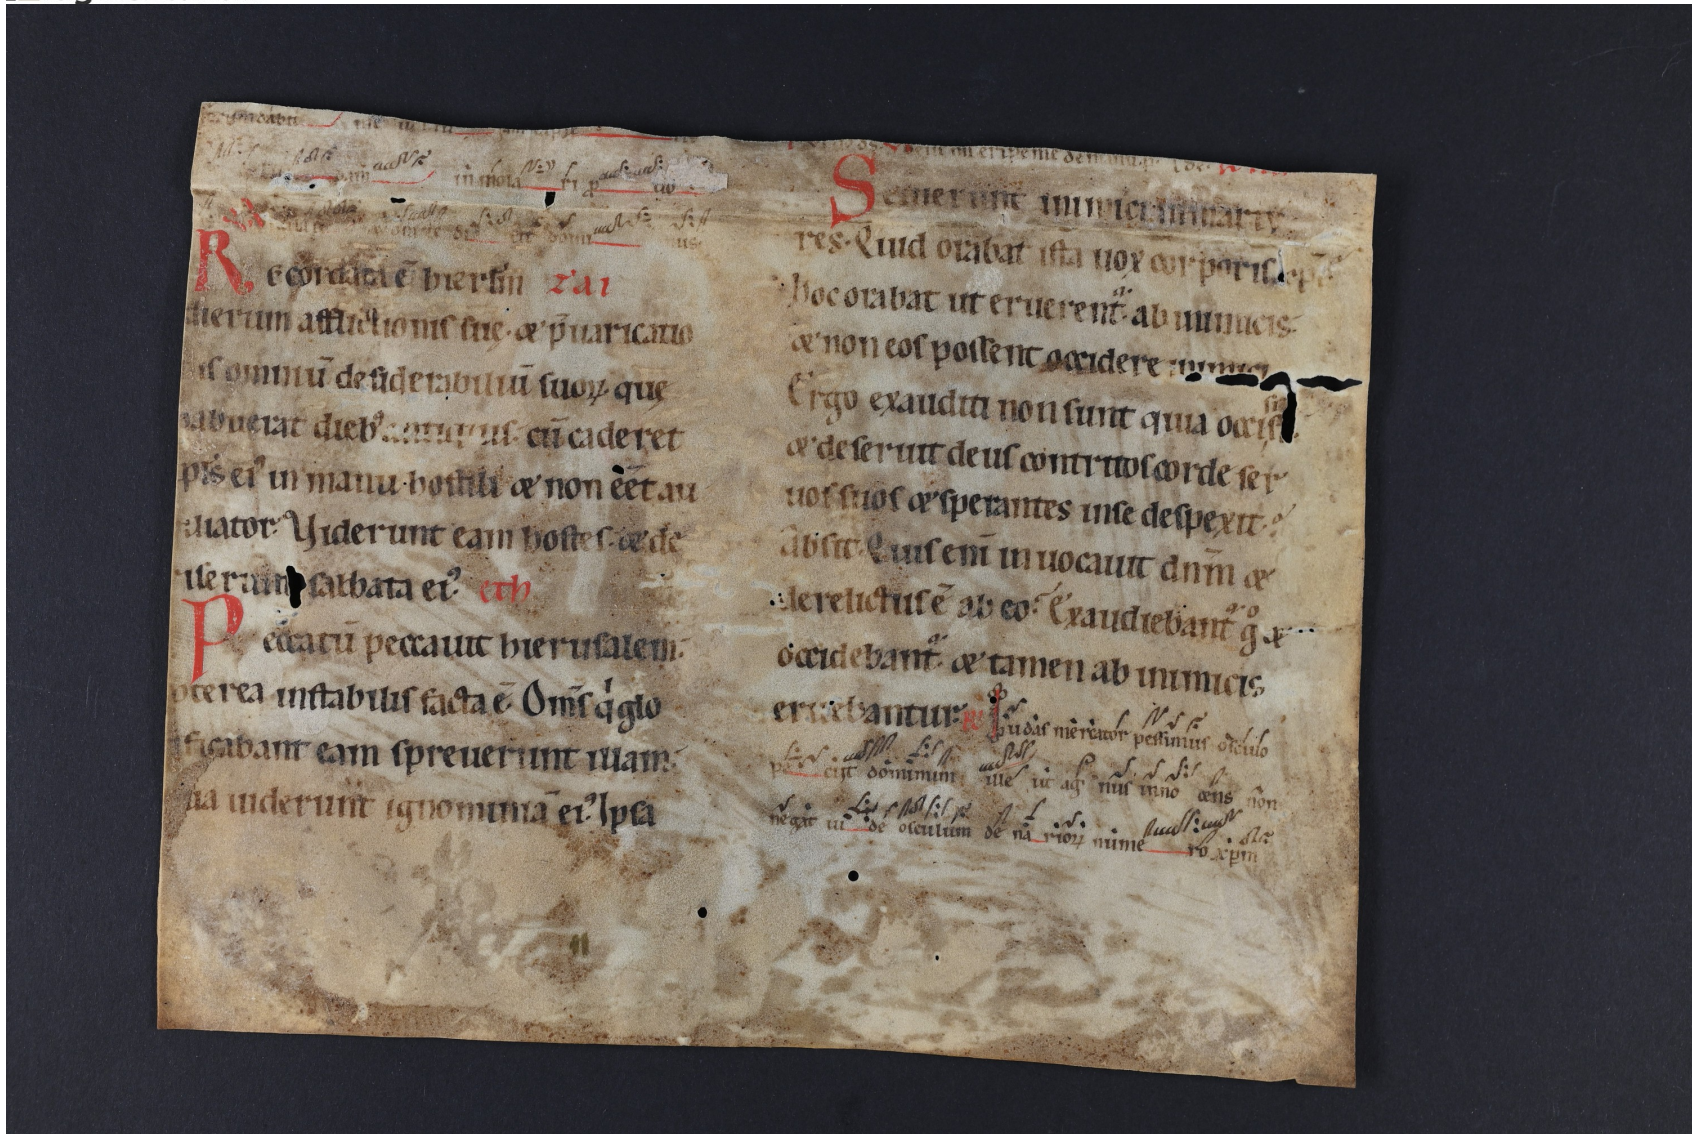 Recordata ē hierłm zai
dierum afflictionis suę. & p̄uaricatio
is omniū desiderabiliū suoꝝ quę
abuerat dieb᷒ antiquis. cū caderet
pl̄s ei᷒ in manu hostili & non eēt au
iliator. Viderunt eam hostes. & de
riserunt sabbata ei᷒ eth
Peccatū peccauit hierusalem.
pterea instabilis facta ē. Om̄s q glo
ificabant eam spreuerunt illam.
ia uiderunt ignominiā ei᷒. Ipsa
Seuierunt inimici in marty
res. Quid orabat ista uox corporis xp̄i
hoc orabat ut eruerent᷒ ab inimicis.
& non eos possent occidere inimici
Ergo exauditi non sunt quia occisi
& deseruit deus contritos corde ser
uos suos & sperantes in se despexit.
Absit. Quis enī inuocauit dn̄m &
derelictus ē ab eo. Exaudiebant᷒ g° &
occidebant᷒. & tamen ab inimicis
eruebantur. R Iudas mercator pessimus osculo
pe ciit dominum ille ut ag nus inno cens non
negat iu de osculum de na rioꝝ nume ro xp̄m